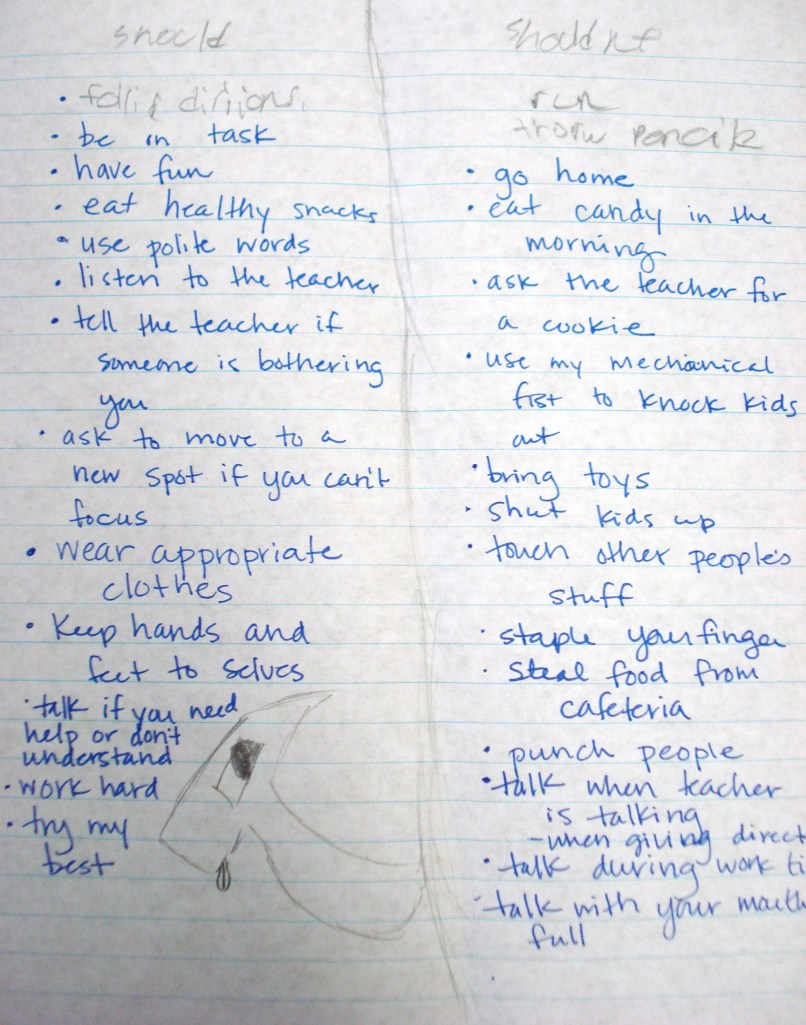 should
• follig diitions.
• be in task
• have fun
• eat healthy snacks
• use polite words
• listen to the teacher
• tell the teacher if
someone is bothering
you
• ask to move to a
new spot if you can't
focus
• wear appropriate
clothes
• Keep hands and
feet to selves
• talk if you need
help or don't
understand
• work hard
• try my
best
shouldnt
run
throw pencik
• go home
• eat candy in the
morning
• ask the teacher for
a cookie
• use my mechanical
fist to knock kids
out
• bring toys
• shut kids up
• touch other people's
stuff
• staple your finger
• Steal food from
cafeteria
• punch people
• talk when teacher
is talking
- when giving direct
• talk during work ti
• talk with your mouth
full